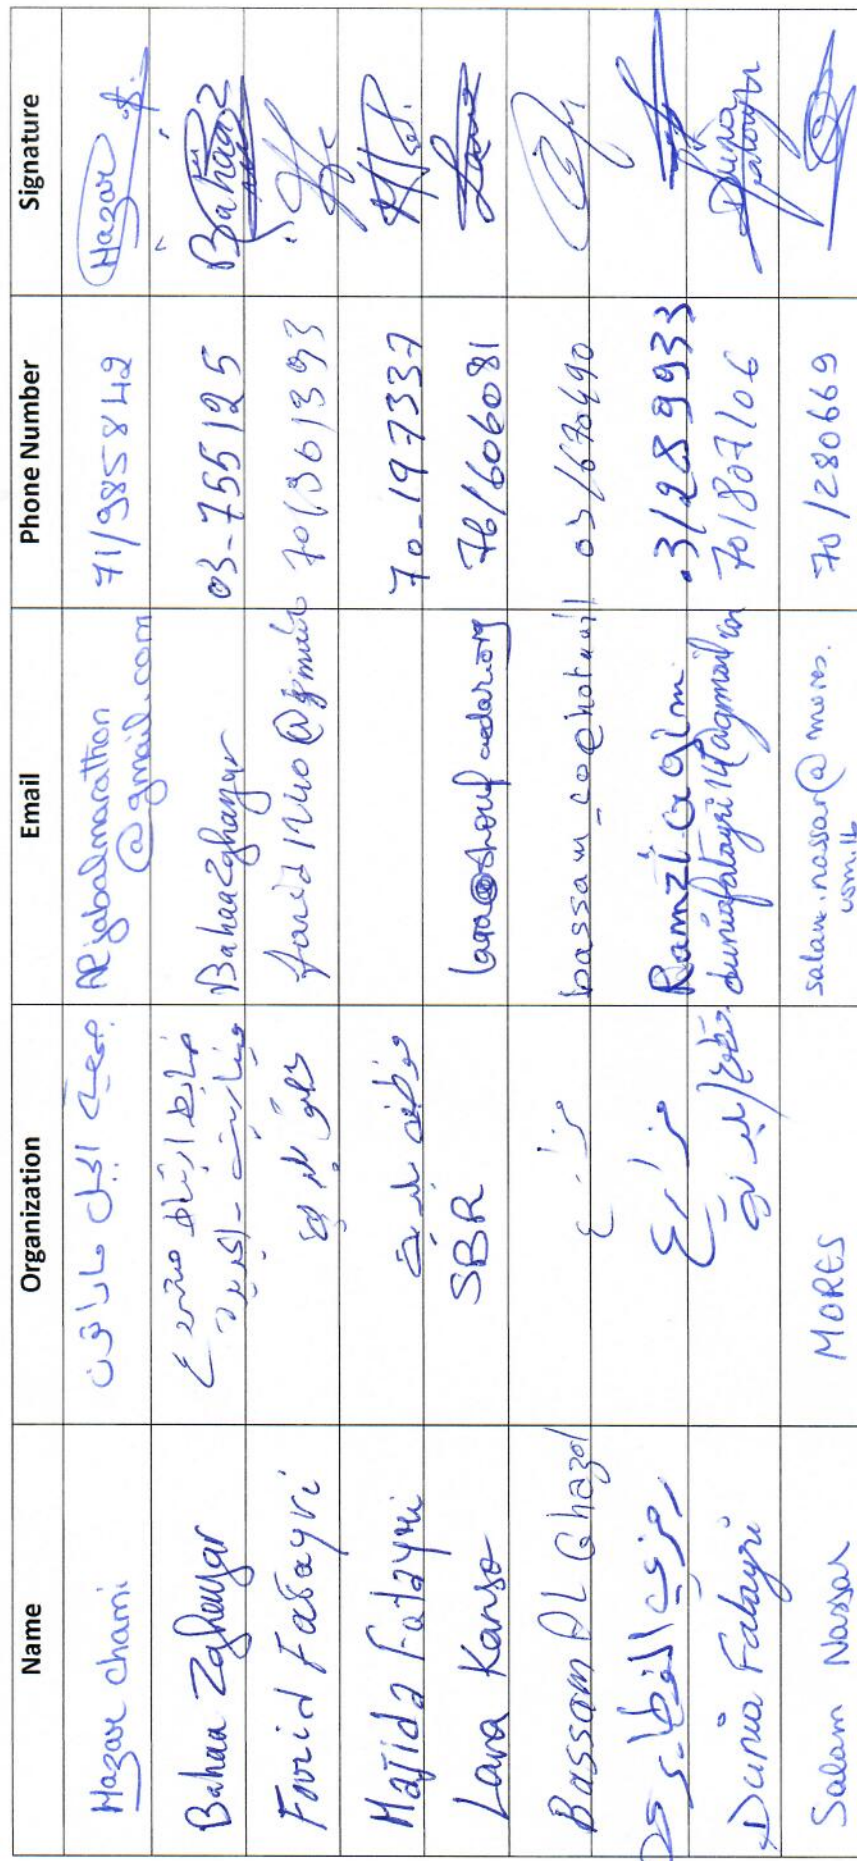 Name Organization Email Phone Number Signature
Hazar Chami جمعية الجبل ماراثون APjabalmarathon @gmail.com 71/985842 Hazar
Bahaa Zghayar ضابط ارتباط مشروع BahaaZghayar 03-755125 Bahaa
Farid Fatayri farid1240@gmail 70/361393
Majida Fatayri موظفة بلدية 70-197337
Lana Kanso SBR lana@shoufcedar.org 76/606081 Lana
Bassam AL Ghazal مزارع bassam_co@hotmail 03/670490
رمزي الفطايري مزارع Ramzi 3/289933
Dunia Fatayri duniafatayri14@gmail.com 70/807106 Dunia Fatayri
Salam Nassar MORES salam.nassar@mores.com.lb 70/280669